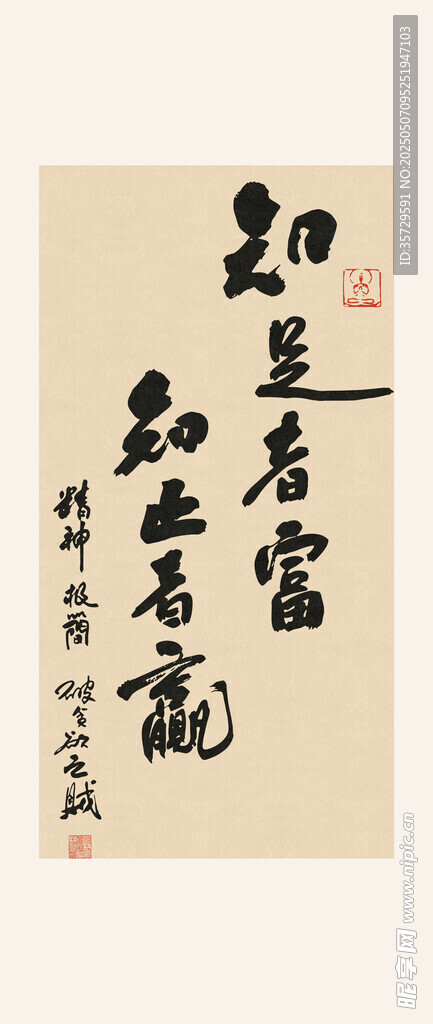 知足者富
知止者贏
精神极簡 破贪欲之賊
ID:35729591 NO:20250507095251947103
昵享网 www.nipic.cn